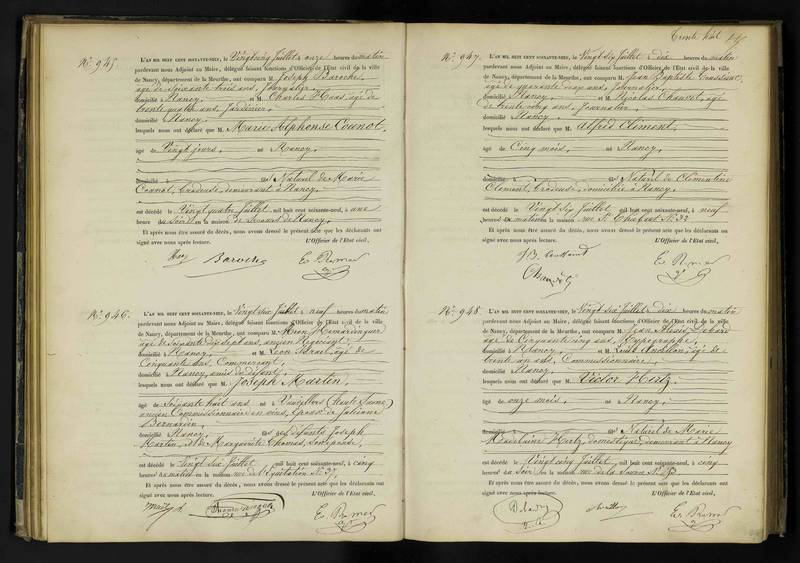 No. 945.
L'AN MIL HUIT CENT SOIXANTE-NEUF, le Vingt cinq Juillet, onze heures du matin
pardevant nous Adjoint au Maire, délégué faisant fonctions d'Officier de l'Etat civil de la ville
de Nancy, département de la Meurthe, ont comparu M. Joseph Baroche,
âgé de Soixante trois ans, Journalier,
domicilié à Nancy, et M. Charles Haas, âgé de
trente quatre ans, Jardinier,
domicilié Nancy.
lesquels nous ont déclaré que M. Marie Alphonse
âgé de Vingt jours, né Nancy,
domicilié à fils Naturel de Marie
demeurant à Nancy,
est décédé le Vingt quatre Juillet, mil huit cent soixante-neuf, à une
heure du soir en la maison de Secours de Nancy,
Et après nous être assuré du décès, nous avons dressé le présent acte que les déclarants ont
signé avec nous après lecture. L'Officier de l'Etat civil,
No. 946.
L'AN MIL HUIT CENT SOIXANTE-NEUF, le Vingt six Juillet, neuf heures du matin
pardevant nous Adjoint au Maire, délégué faisant fonctions d'Officier de l'Etat civil de la ville
de Nancy, département de la Meurthe, ont comparu M.
âgé de Soixante dix sept ans, ancien Négociant,
domicilié à Nancy, et M. Léon Israel, âgé de
Cinquante ans, Commerçant,
domicilié Nancy, amis du défunt,
lesquels nous ont déclaré que M. Joseph Martin,
âgé de Soixante huit ans né à Vauvillers (Haute Saône)
ancien Commissionnaire en vins, Epoux de Julienne
Bernardin,
domicilié Nancy, fils des défunts Joseph
Martin, et de Marguerite Thomas, son épouse,
est décédé le Vingt Six Juillet, mil huit cent soixante-neuf, à cinq
heures du matin en la maison rue de l'Equitation No. 37,
Et après nous être assuré du décès, nous avons dressé le présent acte que les déclarants ont
signé avec nous après lecture. L'Officier de l'Etat civil,
Trente huit
No. 947.
L'AN MIL HUIT CENT SOIXANTE-NEUF, le Vingt Six Juillet, dix heures du matin
pardevant nous Adjoint au Maire, délégué faisant fonctions d'Officier de l'Etat civil de la ville
de Nancy, département de la Meurthe, ont comparu M. Jean Baptiste Toussaint,
âgé de quarante ans, Journalier,
domicilié Nancy, et M. Nicolas Chauvet, âgé
de trente cinq ans, Journalier,
domicilié Nancy.
lesquels nous ont déclaré que M. Alfred Clément,
âgé de Cinq mois, né Nancy,
domicilié à fils Naturel de Clémentine
Clément, brodeuse, domiciliée à Nancy,
est décédé le Vingt Six Juillet, mil huit cent soixante-neuf, à neuf
heures du matin en la maison rue St. No. 32
Et après nous être assuré du décès, nous avons dressé le présent acte que les déclarants ont
signé avec nous après lecture. L'Officier de l'Etat civil,
J B. toussaint
No. 948.
L'AN MIL HUIT CENT SOIXANTE-NEUF, le Vingt Six Juillet, dix heures du matin
pardevant nous Adjoint au Maire, délégué faisant fonctions d'Officier de l'Etat civil de la ville
de Nancy, département de la Meurthe, ont comparu M. Jean
âgé de Cinquante cinq ans, Typographe,
domicilié à Nancy, et M. Louis âgé de
trente un ans, Commissionnaire,
domicilié Nancy.
lesquels nous ont déclaré que M. Victor Hertz,
âgé de onze mois, né à Nancy,
domicilié à fils Naturel de Marie
Madelaine Hertz, domestique, demeurant à Nancy
est décédé le Vingt cinq Juillet, mil huit cent soixante-neuf, à cinq
heures du soir en la maison rue de la
Et après nous être assuré du décès, nous avons dressé le présent acte que les déclarants ont
signé avec nous après lecture. L'Officier de l'Etat civil,